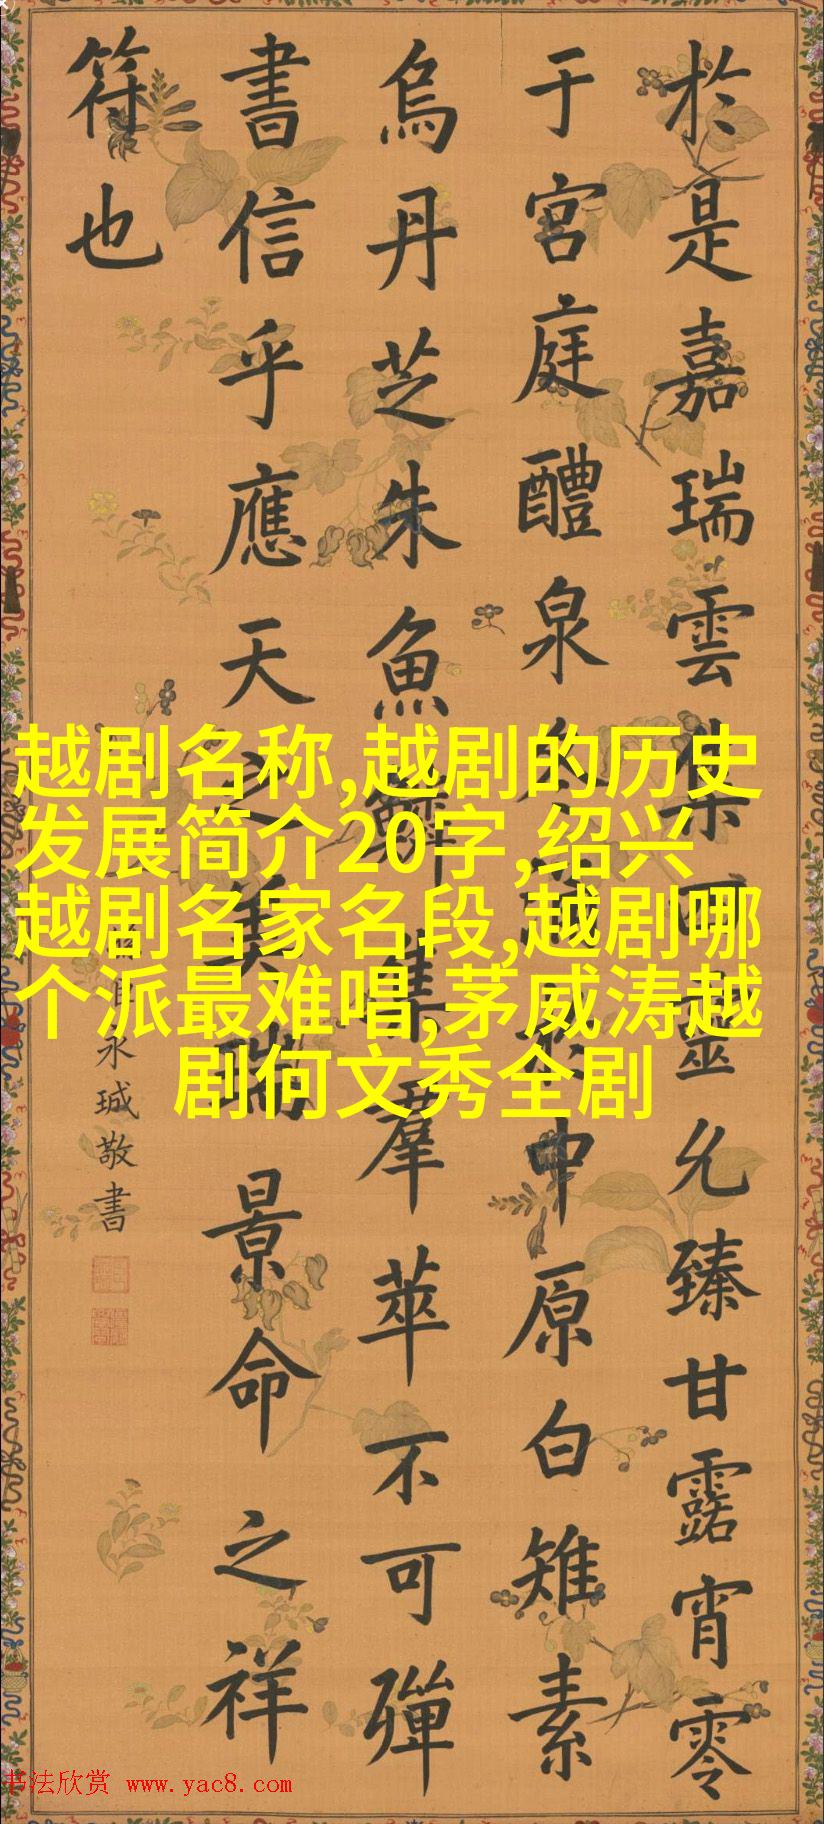 於是嘉瑞雲集四靈允臻甘露宵零
于宮庭醴泉中原白雉素
烏丹芝朱魚集羣萃不可殫
書信乎應天之美瑞景命之祥
符也
臣永瑊敬書
越剧名称,越剧的历史
发展简介20字,绍兴
越剧名家名段,越剧哪
个派最难唱,茅威涛越
剧何文秀全剧
书法欣赏 www.yac8.com